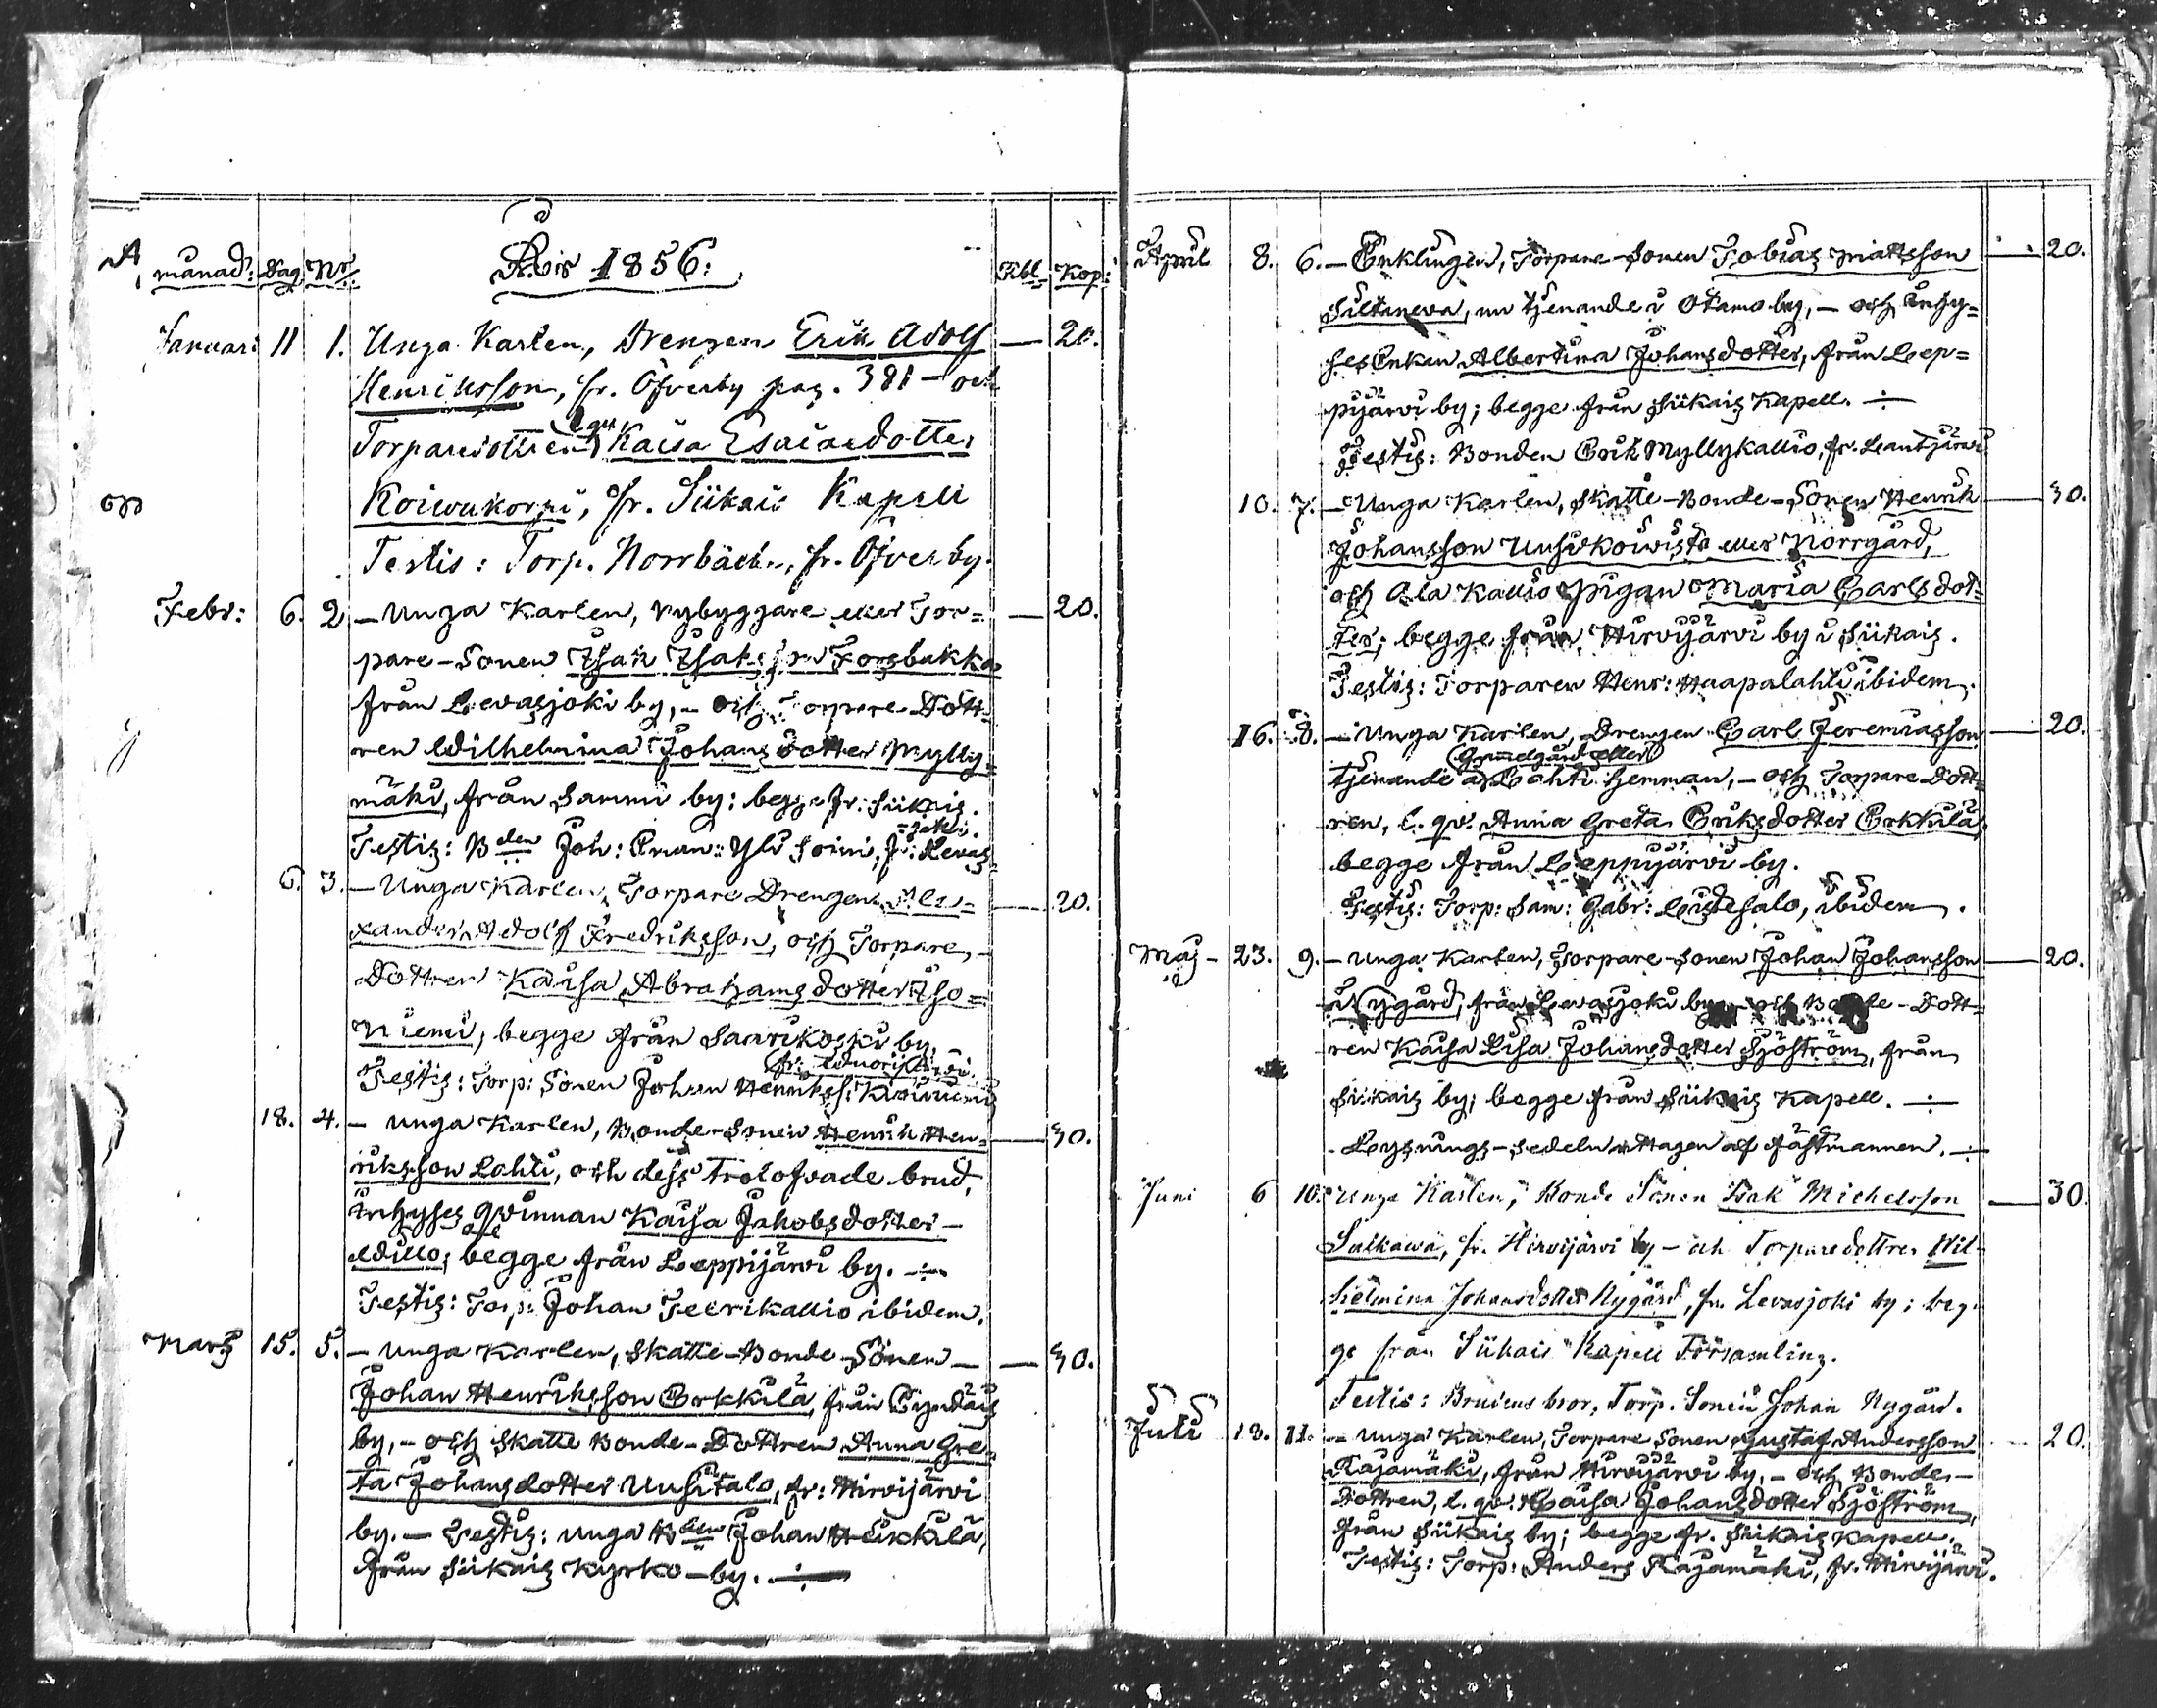 månad: Dag Nr. År 1856: Rbl Kop:
Januari 11 1. Unga Karlen, Drengen Erik Adolf — 20.
Henriksson, fr. Öfverby pag. 381 — och
Torparedottren l. qv. Kaisa Esaiaedotter
Koiwukorpi, fr. Siikais Kapell
Testis: Torp. Norrback, fr. Öfverby.
Febr: 6. 2. — Unga Karlen, Nybyggare eller Tor= — 20.
pare-Sonen Isak Isaksson Forsbakka
från Levasjoki by, — och Torpare-Dott=
ren Wilhelmina Johansdotter Mylly=
mäki, från Sammi by: begge fr. Siikais.
Testis: Bden Joh: Eman: Yli Soini, fr: Levas=
=joki.
6. 3. — Unga Karlen, Torpare Drengen Ale= — 20.
xander Adolf Fredriksson, och Torpare-
Dottren Kaisa Abrahamsdotter Iso=
niemi, begge från Saarikoski by.
Testis: Torp: Sonen Johan Henriksf:
18. 4. — Unga Karlen, Bonde-Sonen Henrik Hen= — 30.
riksson Lahti, och dess trolofvade brud,
Inhyses Qvinnan Kaisa Jakobsdotter
begge från Leppijärvi by. —
Testis: Torp: Johan Teerikallio ibidem.
Mars 15. 5. — Unga Karlen, Skatte-Bonde-Sonen — — 30.
Johan Henriksson Erkkilä, från
by, — och Skatte Bonde-Dottren Anna Gre=
ta Johansdotter Uusitalo, fr: Hirvijärvi
by. — Testis: Unga Bden Johan Heikkilä,
från Siikais Kyrko-by. —
April 8. 6. — Enklingen, Torpare-Sonen Tobias Mattsson — 20.
Siltaneva, nu tjenande i Otamo by, — och Inhy=
ses Enkan Albertina Johansdotter, från Lep=
pijärvi by; begge från Siikais Kapell. —
Testis: Bonden Erik Myllykallio, fr. Leväsjärvi
10. 7. — Unga Karlen, Skatte-Bonde-Sonen Henrik — 30.
Johansson Uusikoivisto eller Norrgård,
och Ala Kallio Pigan Maria Carlsdot=
ter; begge från Hirvijärvi by i Siikais.
Testis: Torparen Henr: Haapalahti ibidem.
16. 8. — Unga Karlen, Drengen Carl Jeremiasson — 20.
Gammelgård eller
tjenande å Lahti hemman, — och Torpare-Dott=
ren, l. qv. Anna Greta Eriksdotter Erkkilä,
begge från Leppijärvi by.
Testis: Torp: Sam: Gabr: Leistesalo, ibidem.
Maj 23. 9. — Unga Karlen, Torpare-Sonen Johan Johansson — 20.
Nygård, från Levasjoki by, — och Bonde-Dott=
ren Kaisa Lisa Johansdotter Sjöström, från
Siikais by; begge från Siikais Kapell. —
Lysnings-sedeln uttagen af fästmannen. —
Juni 6 10. Unga Karlen, Bonde Sonen Isak Michelsson — 30.
Salkawa, fr. Hirvijärvi by — och Torparedottren Wil=
helmina Johansdotter Nygård, fr. Levasjoki by; beg=
ge från Siikais Kapell Församling.
Testis: Brudens bror, Torp. Sonen Johan Nygård.
Juli 18. 11. — Unga Karlen, Torpare Sonen Gustaf Andersson — 20.
Rajamäki, från Hirvijärvi by, — och Bonde-
Dottren, l. qv. Caisa Johansdotter Sjöström,
från Siikais by; begge fr. Siikais Kapell.
Testis: Torp: Anders Rajamäki, fr. Hirvijärvi.